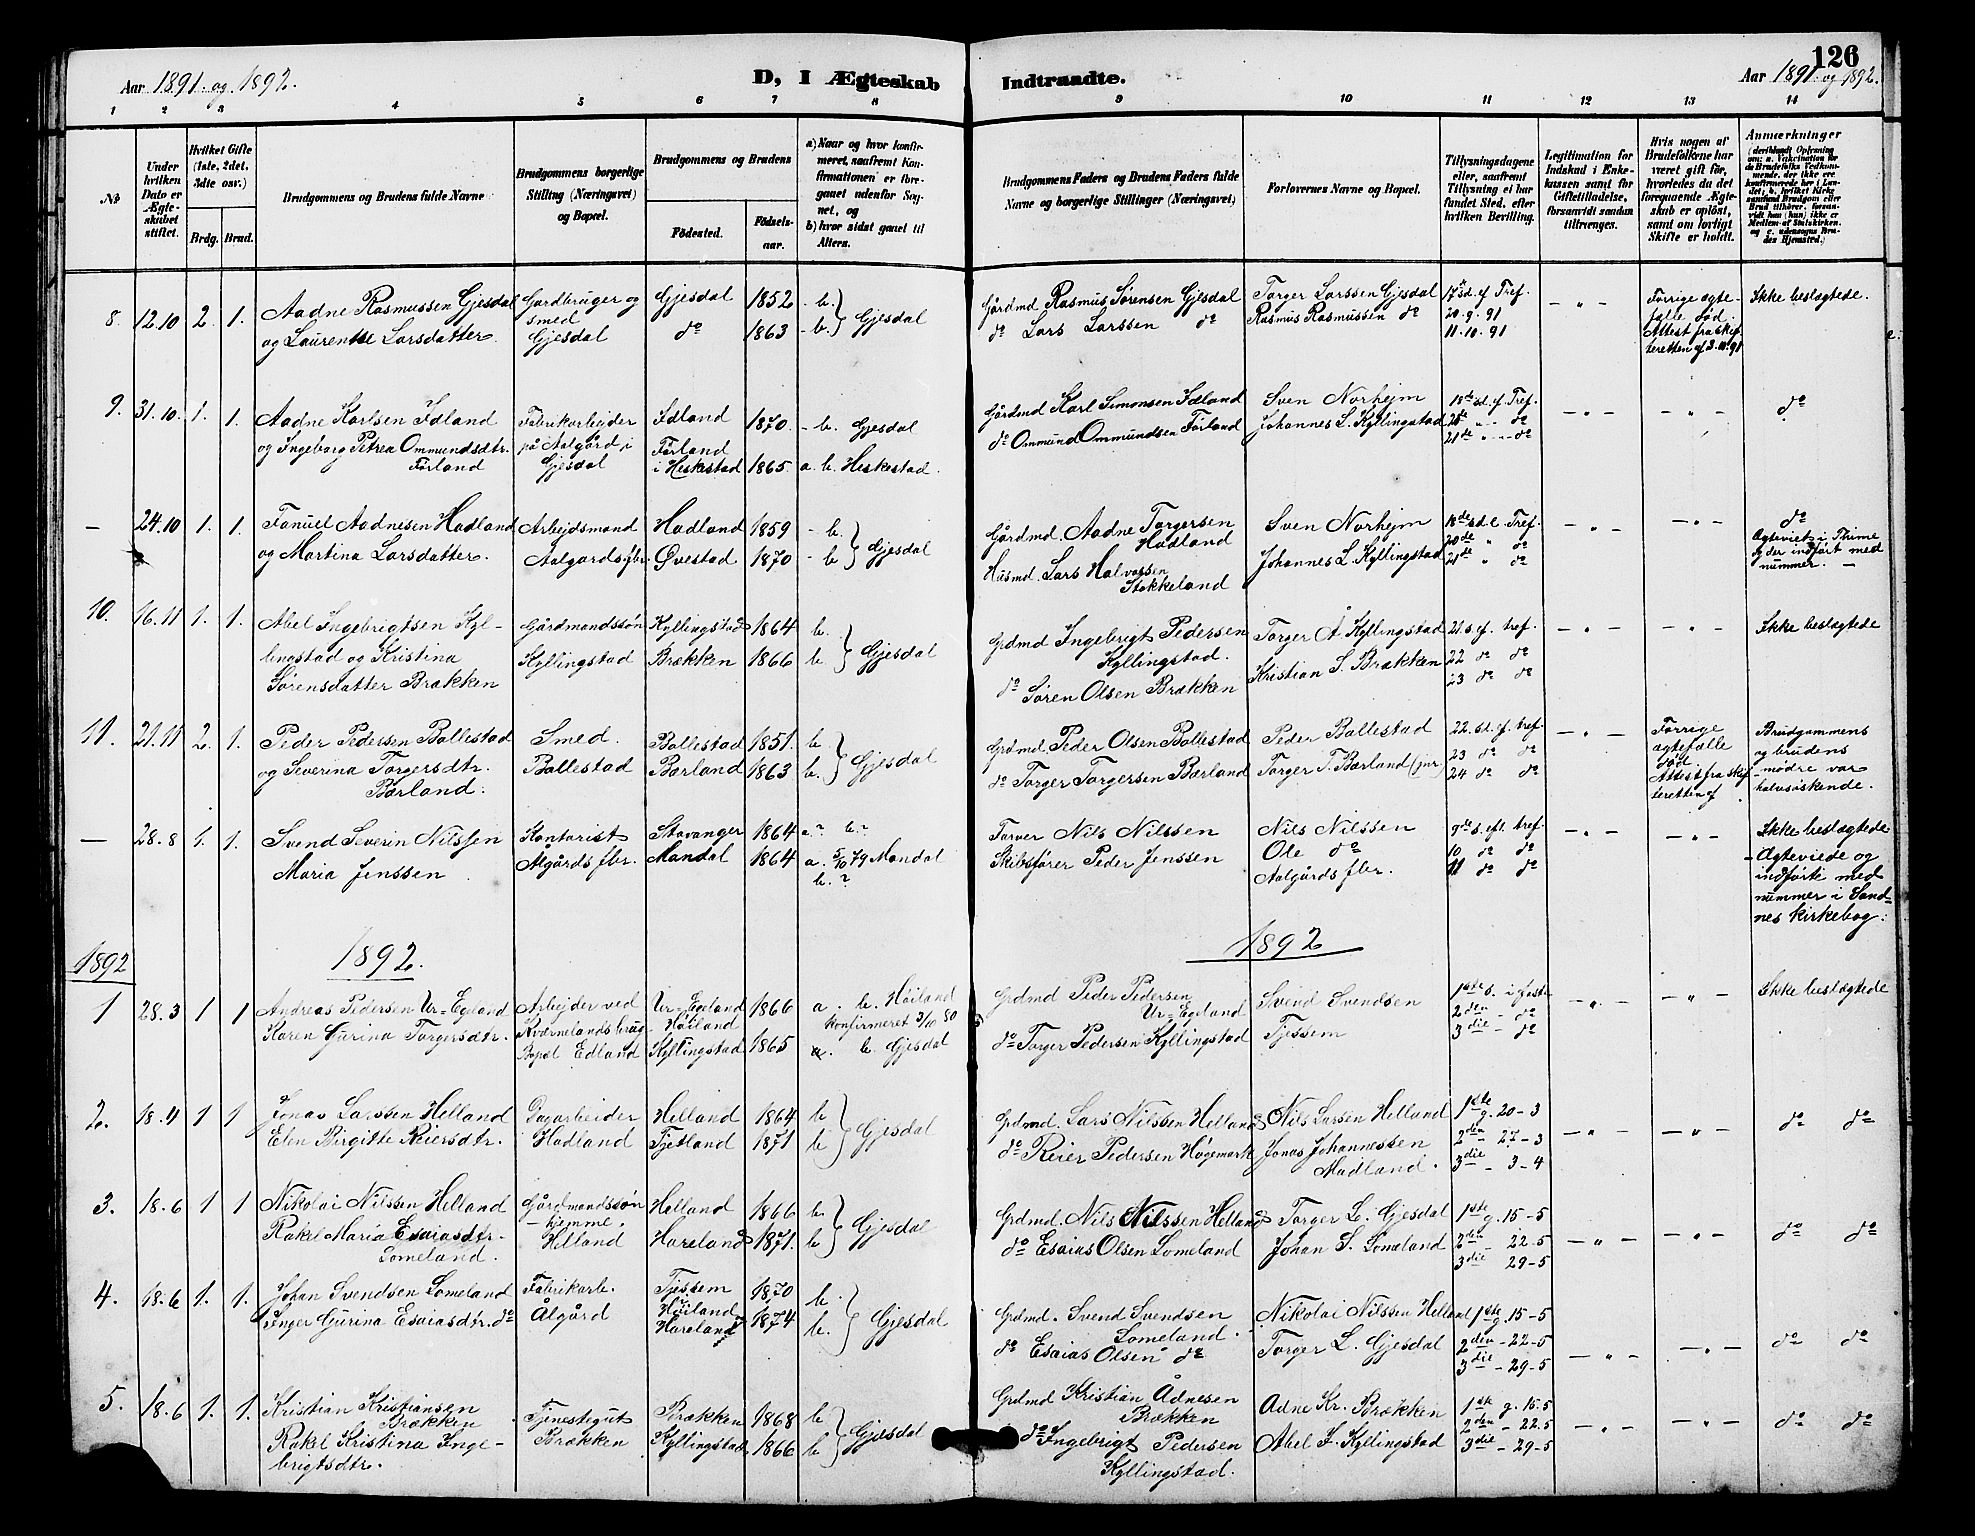 126
Aar 1891 og 1892.
D, I Ægteskab
Indtraadte.
Aar 1891 og 1892.
1 2 3 4 5 6 7 8 9 10 11 12 13 14
№
Under hvilken Dato er Ægteskabet stiftet.
Hvilket Gifte (1ste, 2det, 3die osv.)
Brdg. Brud.
Brudgommens og Brudens fulde Navne
Brudgommens borgerlige Stilling (Næringsvei) og Bopæl.
Brudgommens og Brudens
Fødested.
Fødselsaar.
a) Naar og hvor konfirmeret, saafremt Konfirmationen er foregaaet udenfor Sognet, og
b) hvor sidst gaaet til Alters.
Brudgommens Faders og Brudens Faders fulde Navne og borgerlige Stillinger (Næringsvei)
Forlovernes Navne og Bopæl.
Tillysningsdagene eller, saafremt Tillysning ei har fundet Sted, efter hvilken Bevilling.
Legitimation for Indskud i Enkekassen samt for Giftetilladelse, forsaavidt saadan tiltrænges.
Hvis nogen af Brudefolkene har været gift før, hvorledes da det foregaaende Ægteskab er opløst, samt om lovligt Skifte er holdt.
Anmærkninger
8. 12.10 2. 1. Aadne Rasmussen Gjesdal
og Laurentse Larsdatter.
Gardbruger og
smed
Gjesdal
Gjesdal 1852 - b.
do 1863 - b. Gjesdal
Gårdmd Rasmus Sørensen Gjesdal
do Lars Larssen do
Torger Larssen Gjesdal
Rasmus Rasmussen do
17 sd. ef Tref.
20.9.91
11.10.91
- " -
Forrige ægte-
fælle død.
Attest fra skif
teretten af 3.10.91
Ikke beslægtede.
9. 31.10. 1. 1. Aadne Karlsen Idland
og Ingeborg Petrea Ommundsdtr.
Førland
Fabrikarbeider
på Aalgård i
Gjesdal
Idland 1870 - b. Gjesdal
Førland
i Heskestad 1865. a. b. Heskestad.
Gårdmd Karl Simonsen Idland
do Ommund Ommundsen Førland
Sven Norhejm
Johannes L. Kyllingstad
18de sd. ef. Tref.
20de " do
21de " do
- " - - " - do
- 24.10 1. 1. Fanuel Aadnesen Hadland
og Martina Larsdatter.
Arbejdsmand
Aalgaards fbr.
Hadland 1859 - b.
Øvestad 1870 - b. Gjesdal
Gårdmd. Aadne Torgersen
Hadland
Husmd. Lars Halvorsen
Stokkeland
Sven Norhejm
Johannes L. Kyllingstad
18de sd. e. Tref.
20de " do
21de " do
- " - - " - do
Ægteviet i Thime
og der indført med
nummer. -
10. 16.11 1. 1. Abel Ingebrigtsen Kyl-
lingstad og Kristina
Sørensdatter Brækken
Gårdmandssøn
Kyllingstad
Kyllingstad 1864 b.
Brækken 1866 b. Gjesdal
Grdmd Ingebrigt Pedersen
Kyllingstad.
do Søren Olsen Brækken
Torger Å. Kyllingstad
Kristian S. Brækken
21. s. ef. tref.
22 do do
23 do do
- " - - " - Ikke beslægtede
11. 21.11 2. 1. Peder Pedersen Ballestad
og Severina Torgersdtr.
Bærland.
Smed.
Ballestad
Ballestad 1851. b
Bærland 1863 b. Gjesdal
Grdmd. Peder Olsen Ballestad
do Torger Torgersen Bærland
Peder Ballestad
Torger T. Bærland (jnr)
22. sd. ef. tref.
23 do do
24 do do
- " -
Forrige
ægtefælle
død
Attest fra skif
teretten af
Brudgommens
og brudens
mødre var
halvsøskende.
- 28.8 1. 1. Svend Severin Nilssen
Maria Jenssen
Kontorist
Algårds fbr.
Stavanger 1864 a? b.?
Mandal 1864 a. 5/10 79 Mandal
b. ?
Farver Nils Nilssen
Skibsfører Peder Jenssen
Nils Nilssen
Ole do
Aalgårds fbr.
9de s. eft. tref.
10 do do
11 do do
- " - - " - Ikke beslægtede
- Ægteviede og
indførte med
nummer i Sand-
nes kirkebog.
1892 1892. 1892
1 28.3 1 1 Andreas Pedersen Ur-Egeland
Karen Gurina Torgersdtr.
Arbejder ved
Kværnelandsbrug
Bopæl Edland
Ur-Egeland 1866
Høiland
Kyllingstad 1865
a. b. Høiland
konfirmeret 3/10 80
a. b. Gjesdal
Grdmd Peder Pedersen
Ur-Egeland
do Torger Pedersen Kyllingstad
Svend Svendsen
Tjessem
1ste s. i faste
2den - do
3die - do
- " - - " - Ikke beslægtede
2. 18.4 1 1 Jonas Larssen Helland
Elen Birgitte Reiersdtr.
Dagarbeider
Hadland
Helland 1864 b
Fjetland 1871 b Gjesdal
Grdmd. Lars Nilssen Helland
do Reier Pedersen Høgemark
Nils Larsen Helland
Jonas Johannessen
Madland.
1ste g. 20-3
2den - 27-3
3die - 3-4
- " - - " - do do
3. 18.6 1 1 Nikolai Nilssen Helland
Rakel Maria Esaiasdtr.
Lomeland.
Gårdmandssøn
- hjemme.
Helland
Helland 1866 b.
Hareland 1871. b. Gjesdal
Grdmd. Nils Nilssen Helland
do Esaias Olsen Lomeland
Torger L. Gjesdal
Johan S. Lomeland
1ste g. 15-5
2den - 22-5
3die 29-5
- " - - " - do do
4. 18.6 1. 1. Johan Svendsen Lomeland
Inger Gurina Esaiasdtr. do
Fabrikarb.
Ålgård
Tjessem 1870 b.
Høiland
Hareland 1874 b. Gjesdal
Grdmd. Svend Svendsen
Lomeland.
do Esaias Olsen do
Nikolai Nilssen Helland
Torger L. Gjesdal
1ste g. 15-5
2den - 22-5
3die - 29-5
- " - - " - do do
5. 18.6 1. 1. Kristian Kristiansen
Brækken
Rakel Kristina Inge-
brigtsdtr.
Tjenestegut
Brækken
Brækken 1868 b
Kyllingstad 1866 b Gjesdal
Grdmd Kristian Ådnesen
Brækken
do Ingebrigt Pedersen
Kyllingstad.
Adne Kr. Brækken
Abel I. Kyllingstad
1ste g. 15.5
2den - 22.5
3die - 29-5
- " - - " - do do